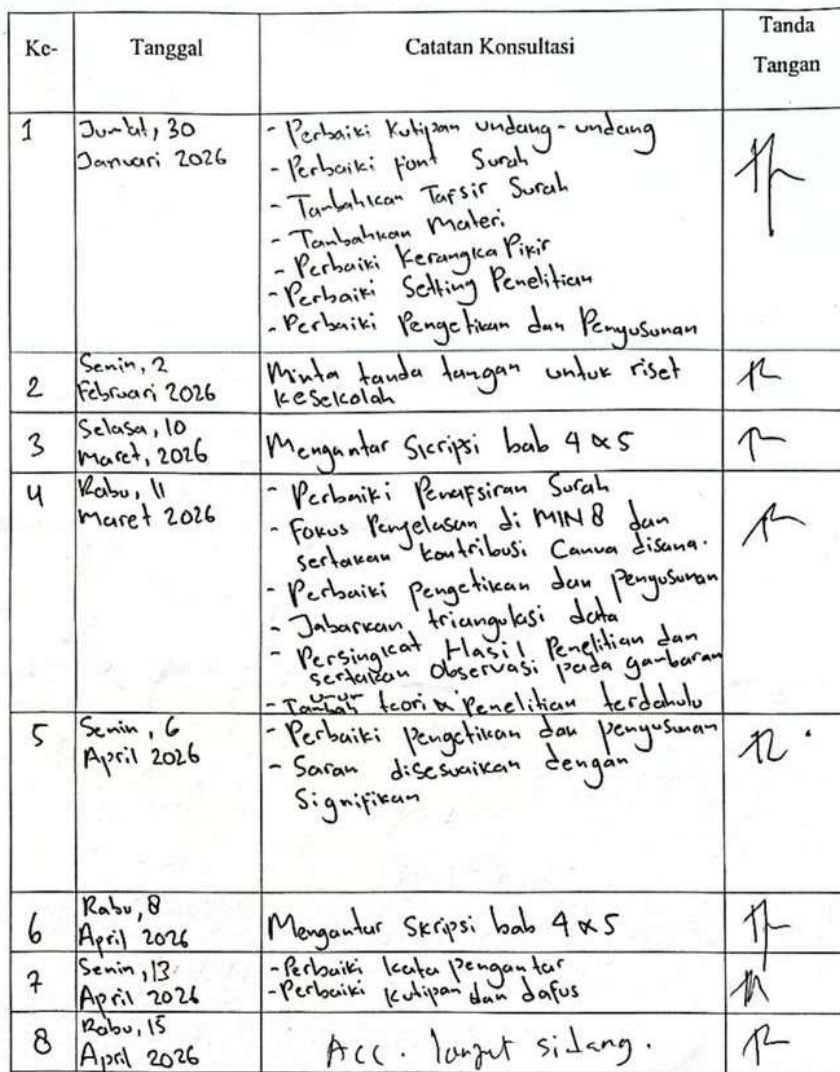 Ke-
Tanggal
Catatan Konsultasi
Tanda
Tangan
1
Jum'at, 30
Januari 2026
- Perbaiki Kutipan undang-undang
- Perbaiki font Surah
- Tambahkan Tafsir Surah
- Tambahkan Materi
- Perbaiki Kerangka Pikir
- Perbaiki Setting Penelitian
- Perbaiki Pengetikan dan Penyusunan
2
Senin, 2
Februari 2026
Minta tanda tangan untuk riset
kesekolah
3
Selasa, 10
Maret, 2026
Mengantar Skripsi bab 4 & 5
4
Rabu, 11
Maret 2026
- Perbaiki Penafsiran Surah
- Fokus Penjelasan di MIN 8 dan
sertakan kontribusi Canva disana.
- Perbaiki pengetikan dan penyusunan
- Jabarkan triangulasi data
- Persingkat Hasil Penelitian dan
sertakan Observasi pada gambaran
umum
- Tambah teori & Penelitian terdahulu
5
Senin, 6
April 2026
- Perbaiki pengetikan dan penyusunan
- Saran disesuaikan dengan
Signifikan
6
Rabu, 8
April 2026
Mengantar Skripsi bab 4 & 5
7
Senin, 13
April 2026
- Perbaiki kata pengantar
- Perbaiki kutipan dan dafus
8
Rabu, 15
April 2026
Acc. lanjut sidang.